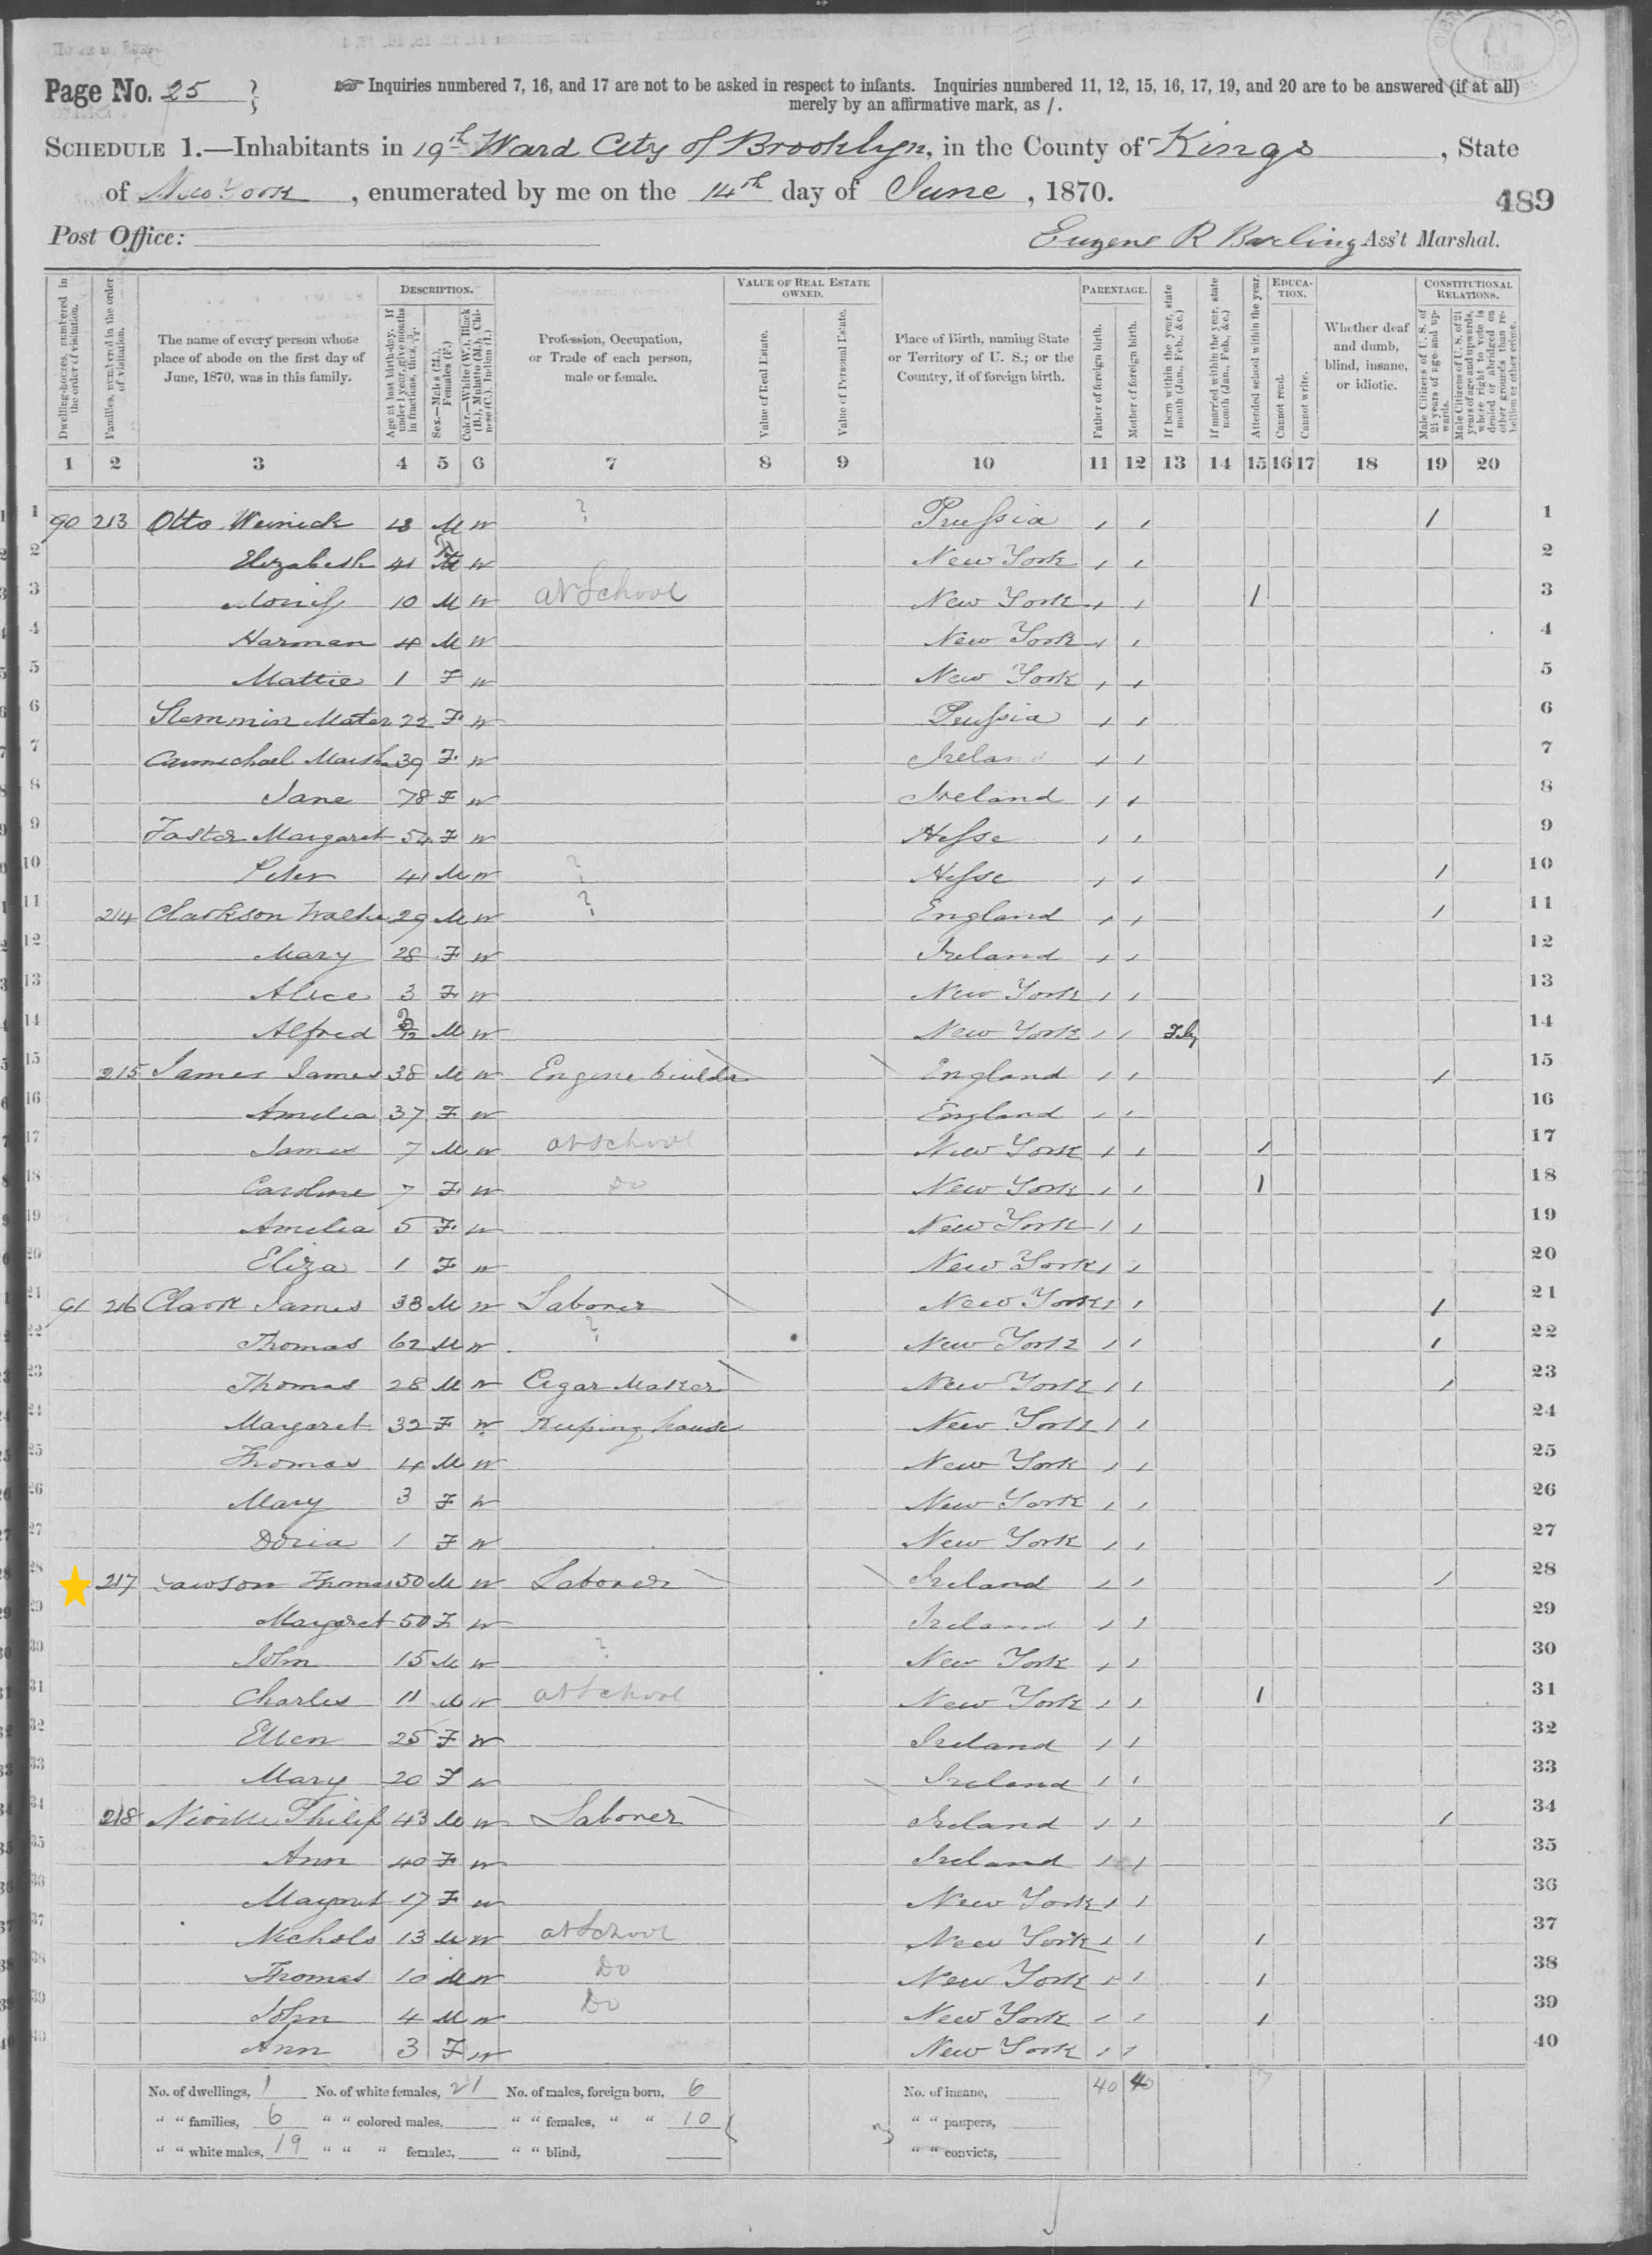 Page No. 25
☞ Inquiries numbered 7, 16, and 17 are not to be asked in respect to infants. Inquiries numbered 11, 12, 15, 16, 17, 19, and 20 are to be answered (if at all)
merely by an affirmative mark, as /.
SCHEDULE 1.—Inhabitants in 19th Ward City of Brooklyn, in the County of Kings, State
of New York, enumerated by me on the 14th day of June, 1870.
489
Post Office:
Eugene R Ass't Marshal.
Dwelling-houses, numbered in the order of visitation.
Families, numbered in the order of visitation.
The name of every person whose place of abode on the first day of June, 1870, was in this family.
DESCRIPTION.
Age at last birth-day. If under 1 year, give months in fractions, thus,
Sex.—Males (M.), Females (F.)
Color.—White (W.), Black (B.), Mulatto (M.), Chinese (C.), Indian (I.)
Profession, Occupation, or Trade of each person, male or female.
VALUE OF REAL ESTATE OWNED.
Value of Real Estate.
Value of Personal Estate.
Place of Birth, naming State or Territory of U. S.; or the Country, if of foreign birth.
PARENTAGE.
Father of foreign birth.
Mother of foreign birth.
If born within the year, state month (Jan., Feb., &c.)
If married within the year, state month (Jan., Feb., &c.)
Attended school within the year.
EDUCATION.
Cannot read.
Cannot write.
Whether deaf and dumb, blind, insane, or idiotic.
CONSTITUTIONAL RELATIONS.
Male Citizens of U. S. of 21 years of age and upwards.
Male Citizens of U. S. of 21 years of age and upwards, where right to vote is denied or abridged on other grounds than rebellion or other crime.
1 2 3 4 5 6 7 8 9 10 11 12 13 14 15 16 17 18 19 20
1 90 213 Otto M W ? Prussia / / / 1
2 Elizabeth 41 W New York / / 2
3 10 M W at School New York / / / 3
4 Harman 4 M W New York / / 4
5 Mattie 1 F W New York / / 5
6 Mater 22 F W Prussia / / 6
7 39 F W Ireland / / 7
8 Jane 78 F W Ireland / / 8
9 Foster Margaret 54 F W Hesse / / 9
10 Peter 41 M W ? Hesse / / / 10
11 214 Clarkson 29 M W ? England / / / 11
12 Mary 28 F W Ireland / / 12
13 Alice 3 F W New York / / 13
14 Alfred M W New York / / 14
15 215 James James 38 M W Engine builder England / / / 15
16 Amelia 37 F W England / / 16
17 James 7 M W at school New York / / / 17
18 Caroline 7 F W Do New York / / / 18
19 Amelia 5 F W New York / / 19
20 Eliza 1 F W New York / / 20
21 91 216 Clark James 38 M W Laborer New York / / / 21
22 Thomas 62 M W ? New York / / / 22
23 Thomas 28 M W Cigar Maker New York / / / 23
24 Margaret 32 F W Keeping house New York / / 24
25 Thomas 4 M W New York / / 25
26 Mary 3 F W New York / / 26
27 Doria 1 F W New York / / 27
28 217 Lawson Thomas 50 M W Laborer Ireland / / / 28
29 Margaret 50 F W Ireland / / 29
30 John 15 M W ? New York / / 30
31 Charles 11 M W at School New York / / / 31
32 Ellen 25 F W Ireland / / 32
33 Mary 20 F W Ireland / / 33
34 218 Philip 43 M W Laborer Ireland / / / 34
35 Ann 40 F W Ireland / / 35
36 Margret 17 F W New York / / 36
37 Nichols 13 M W at School New York / / / 37
38 Thomas 10 M W Do New York / / / 38
39 John 4 M W Do New York / / / 39
40 Ann 3 F W New York / / 40
No. of dwellings, 1 No. of white females, 21 No. of males, foreign born, 6 No. of insane, 40 40
" " families, 6 " " colored males, " " females, " " 10 " " paupers,
" " white males, 19 " " " females, " " blind, " " convicts,